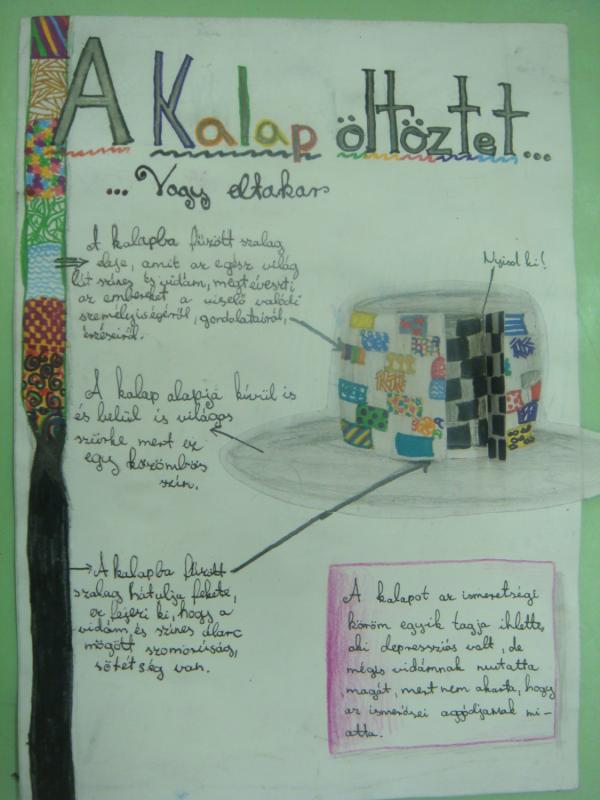 A Kalap öltöztet...
... Vagy eltakar
A kalapba fűzött szalag
eleje, amit az egész világ
lát színes és vidám, megtéveszti
az embereket, a viselő valódi
személyiségéről, gondolatairól,
érzéseiről.
Nyisd ki!
A kalap alapja kívül is
és belül is világos
szürke mert ez
egy közömbös
szín.
A kalapba fűzött
szalag hátulja fekete,
ez fejezi ki, hogy a
vidám, és színes álarc
mögött szomorúság,
sötétség van.
A kalapot az ismeretségi
köröm egyik tagja ihlette,
aki depressziós volt, de
mégis vidámnak mutatta
magát, mert nem akarta, hogy
az ismerősei aggódjanak mi-
atta.